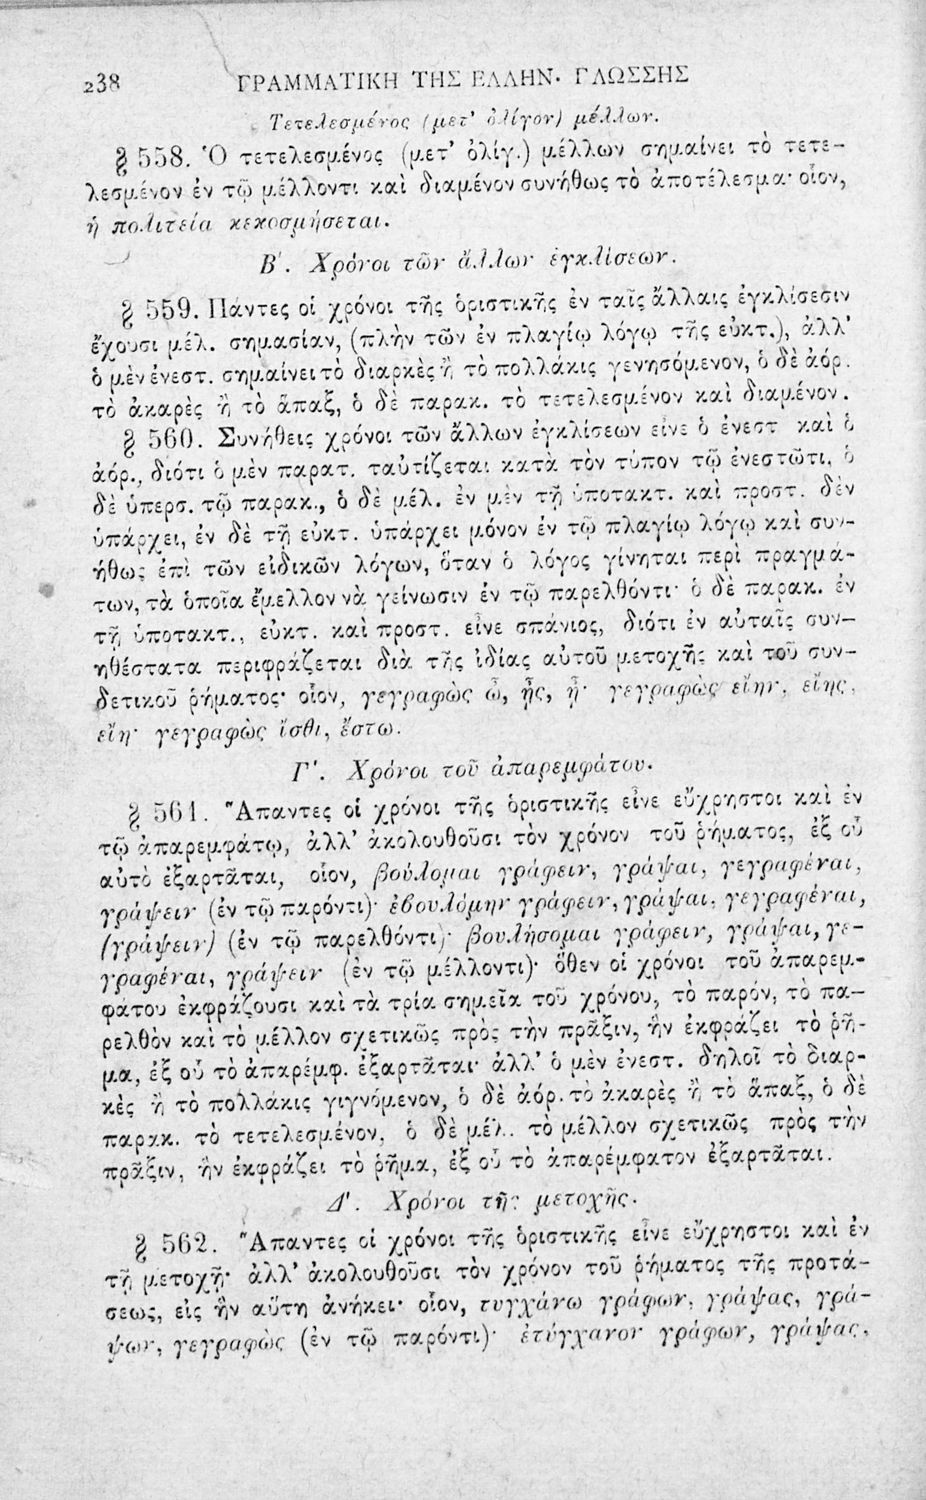 238 ΓΡΑΜΜΑΤΙΚΗ ΤΗΣ ΕΛΛΗΝ· ΓΛΩΣΣΗΣ
Τετελεσμένος (μετ' ὀλίγον) μέλλων.
§ 558. Ὁ τετελεσμένος (μετ' ὀλίγ.) μέλλων σημαίνει τὸ τετε-
λεσμένον ἐν τῷ μέλλοντι καὶ διαμένον συνήθως τὸ ἀποτέλεσμα· οἷον,
ἡ πολιτεία κεκοσμήσεται.
Β'. Χρόνοι τῶν ἄλλων ἐγκλίσεων.
§ 559. Πάντες οἱ χρόνοι τῆς ὁριστικῆς ἐν ταῖς ἄλλαις ἐγκλίσεσιν
ἔχουσι μέλ. σημασίαν, (πλὴν τῶν ἐν πλαγίῳ λόγῳ τῆς εὐκτ.), ἀλλ'
ὁ μὲν ἐνεστ. σημαίνει τὸ διαρκὲς ἢ τὸ πολλάκις γενησόμενον, ὁ δὲ ἀόρ.
τὸ ἀκαρὲς ἢ τὸ ἅπαξ, ὁ δὲ παρακ. τὸ τετελεσμένον καὶ διαμένον.
§ 560. Συνήθεις χρόνοι τῶν ἄλλων ἐγκλίσεων εἶνε ὁ ἐνεστ καὶ ὁ
ἀόρ., διότι ὁ μὲν παρατ. ταὐτίζεται κατὰ τὸν τύπον τῷ ἐνεστῶτι, ὁ
δὲ ὑπερσ. τῷ παρακ., ὁ δὲ μέλ. ἐν μὲν τῇ ὑποτακτ. καὶ προστ. δὲν
ὑπάρχει, ἐν δὲ τῇ εὐκτ. ὑπάρχει μόνον ἐν τῷ πλαγίῳ λόγῳ καὶ συν-
ήθως ἐπὶ τῶν εἰδικῶν λόγων, ὅταν ὁ λόγος γίνηται περὶ πραγμά-
των, τὰ ὁποῖα ἔμελλον νὰ γείνωσιν ἐν τῷ παρελθόντι· ὁ δὲ παρακ. ἐν
τῇ ὑποτακτ., εὐκτ. καὶ προστ. εἶνε σπάνιος, διότι ἐν αὐταῖς συν-
ηθέστατα περιφράζεται διὰ τῆς ἰδίας αὐτοῦ μετοχῆς καὶ τοῦ συν-
δετικοῦ ῥήματος· οἷον, γεγραφὼς ὦ, ᾖς, ᾖ· γεγραφὼς εἴην, εἴης,
εἴη· γεγραφὼς ἴσθι, ἔστω.
Γ'. Χρόνοι τοῦ ἀπαρεμφάτου.
§ 561. Ἅπαντες οἱ χρόνοι τῆς ὁριστικῆς εἶνε εὔχρηστοι καὶ ἐν
τῷ ἀπαρεμφάτῳ, ἀλλ' ἀκολουθοῦσι τὸν χρόνον τοῦ ῥήματος, ἐξ οὗ
αὐτὸ ἐξαρτᾶται, οἷον, βούλομαι γράφειν, γράψαι, γεγραφέναι,
γράψειν (ἐν τῷ παρόντι)· ἐβουλόμην γράφειν, γράψαι, γεγραφέναι,
(γράψειν) (ἐν τῷ παρελθόντι)· βουλήσομαι γράφειν, γράψαι, γε-
γραφέναι, γράψειν (ἐν τῷ μέλλοντι)· ὅθεν οἱ χρόνοι τοῦ ἀπαρεμ-
φάτου ἐκφράζουσι καὶ τὰ τρία σημεῖα τοῦ χρόνου, τὸ παρόν, τὸ πα-
ρελθὸν καὶ τὸ μέλλον σχετικῶς πρὸς τὴν πρᾶξιν, ἣν ἐκφράζει τὸ ῥῆ-
μα, ἐξ οὗ τὸ ἀπαρέμφ. ἐξαρτᾶται· ἀλλ' ὁ μὲν ἐνεστ. δηλοῖ τὸ διαρ-
κὲς ἢ τὸ πολλάκις γιγνόμενον, ὁ δὲ ἀόρ. τὸ ἀκαρὲς ἢ τὸ ἅπαξ, ὁ δὲ
παρακ. τὸ τετελεσμένον, ὁ δὲ μέλ. τὸ μέλλον σχετικῶς πρὸς τὴν
πρᾶξιν, ἣν ἐκφράζει τὸ ῥῆμα, ἐξ οὗ τὸ ἀπαρέμφατον ἐξαρτᾶται.
Δ'. Χρόνοι τῆς μετοχῆς.
§ 562. Ἅπαντες οἱ χρόνοι τῆς ὁριστικῆς εἶνε εὔχρηστοι καὶ ἐν
τῇ μετοχῇ· ἀλλ' ἀκολουθοῦσι τὸν χρόνον τοῦ ῥήματος τῆς προτά-
σεως, εἰς ἣν αὕτη ἀνήκει· οἷον, τυγχάνω γράφων, γράψας, γρά-
ψων, γεγραφὼς (ἐν τῷ παρόντι)· ἐτύγχανον γράφων, γράψας,